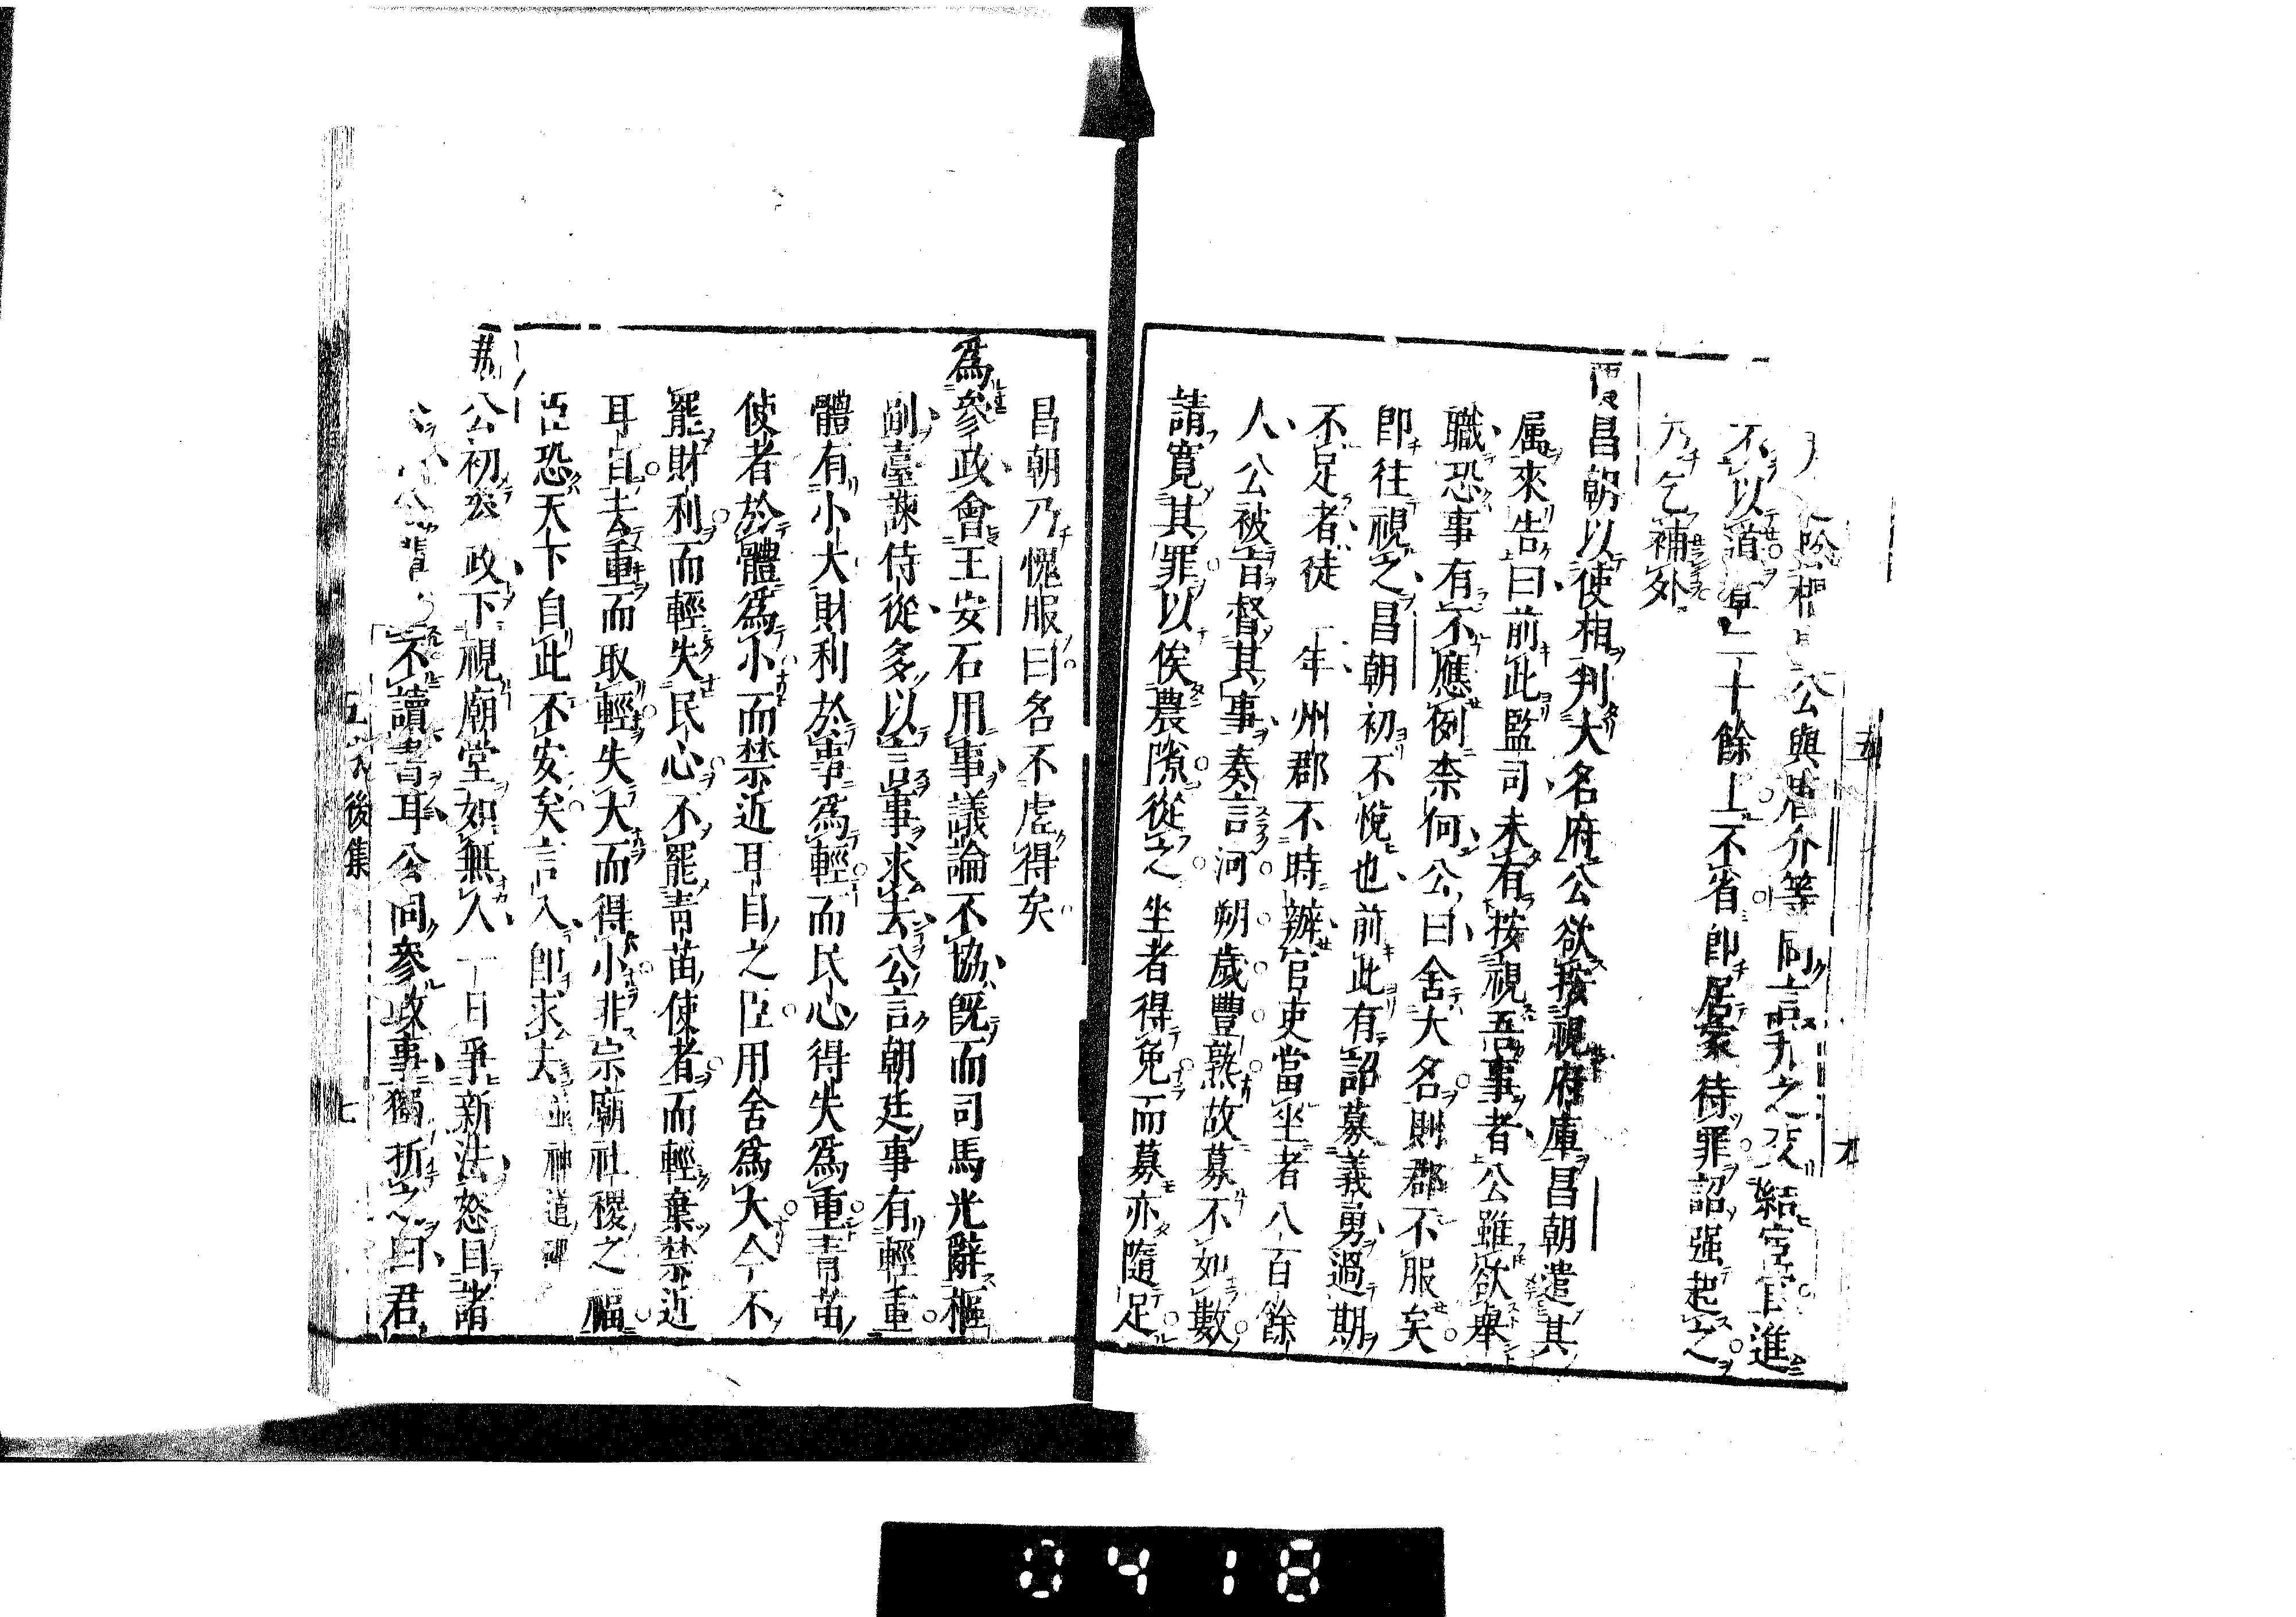 公與唐介等同言升之交結宦官進
不以道章二十餘上不省即居家待罪詔强起之
乃乞補外
昌朝以使相判大名府公欲按視府庫昌朝遣其
属來告曰前此監司未有按視吾事者公雖欲舉
職恐事有不應例柰何公曰舍大名則郡不服矣
即往視之昌朝初不悅也前此有詔募義勇過期
不足者徒一年州郡不時辦官吏當坐者八百餘
人公被旨督其事奏言河朔歲豐熟故募不如數
請寛其罪以俟農隙從之坐者得免而募亦隨足
昌朝乃愧服曰名不虛得矣
爲參政會王安石用事議論不恊既而司馬光辭樞
副臺諫侍從多以言事求去公言朝廷事有輕重
體有小大財利於事爲輕而民心得失爲重青苗
使者於體爲小而禁近耳目之臣用舍爲大今不
罷財利而輕失民心不罷青苗使者而輕棄禁近
耳目去重而取輕失大而得小非宗廟社稷之福
臣恐天下自此不安矣言入即求去並神道碑
公初 政下視廟堂如無人一日爭新法怒目諸
不讀書耳公同參政事獨折之曰君
後集
七
0418